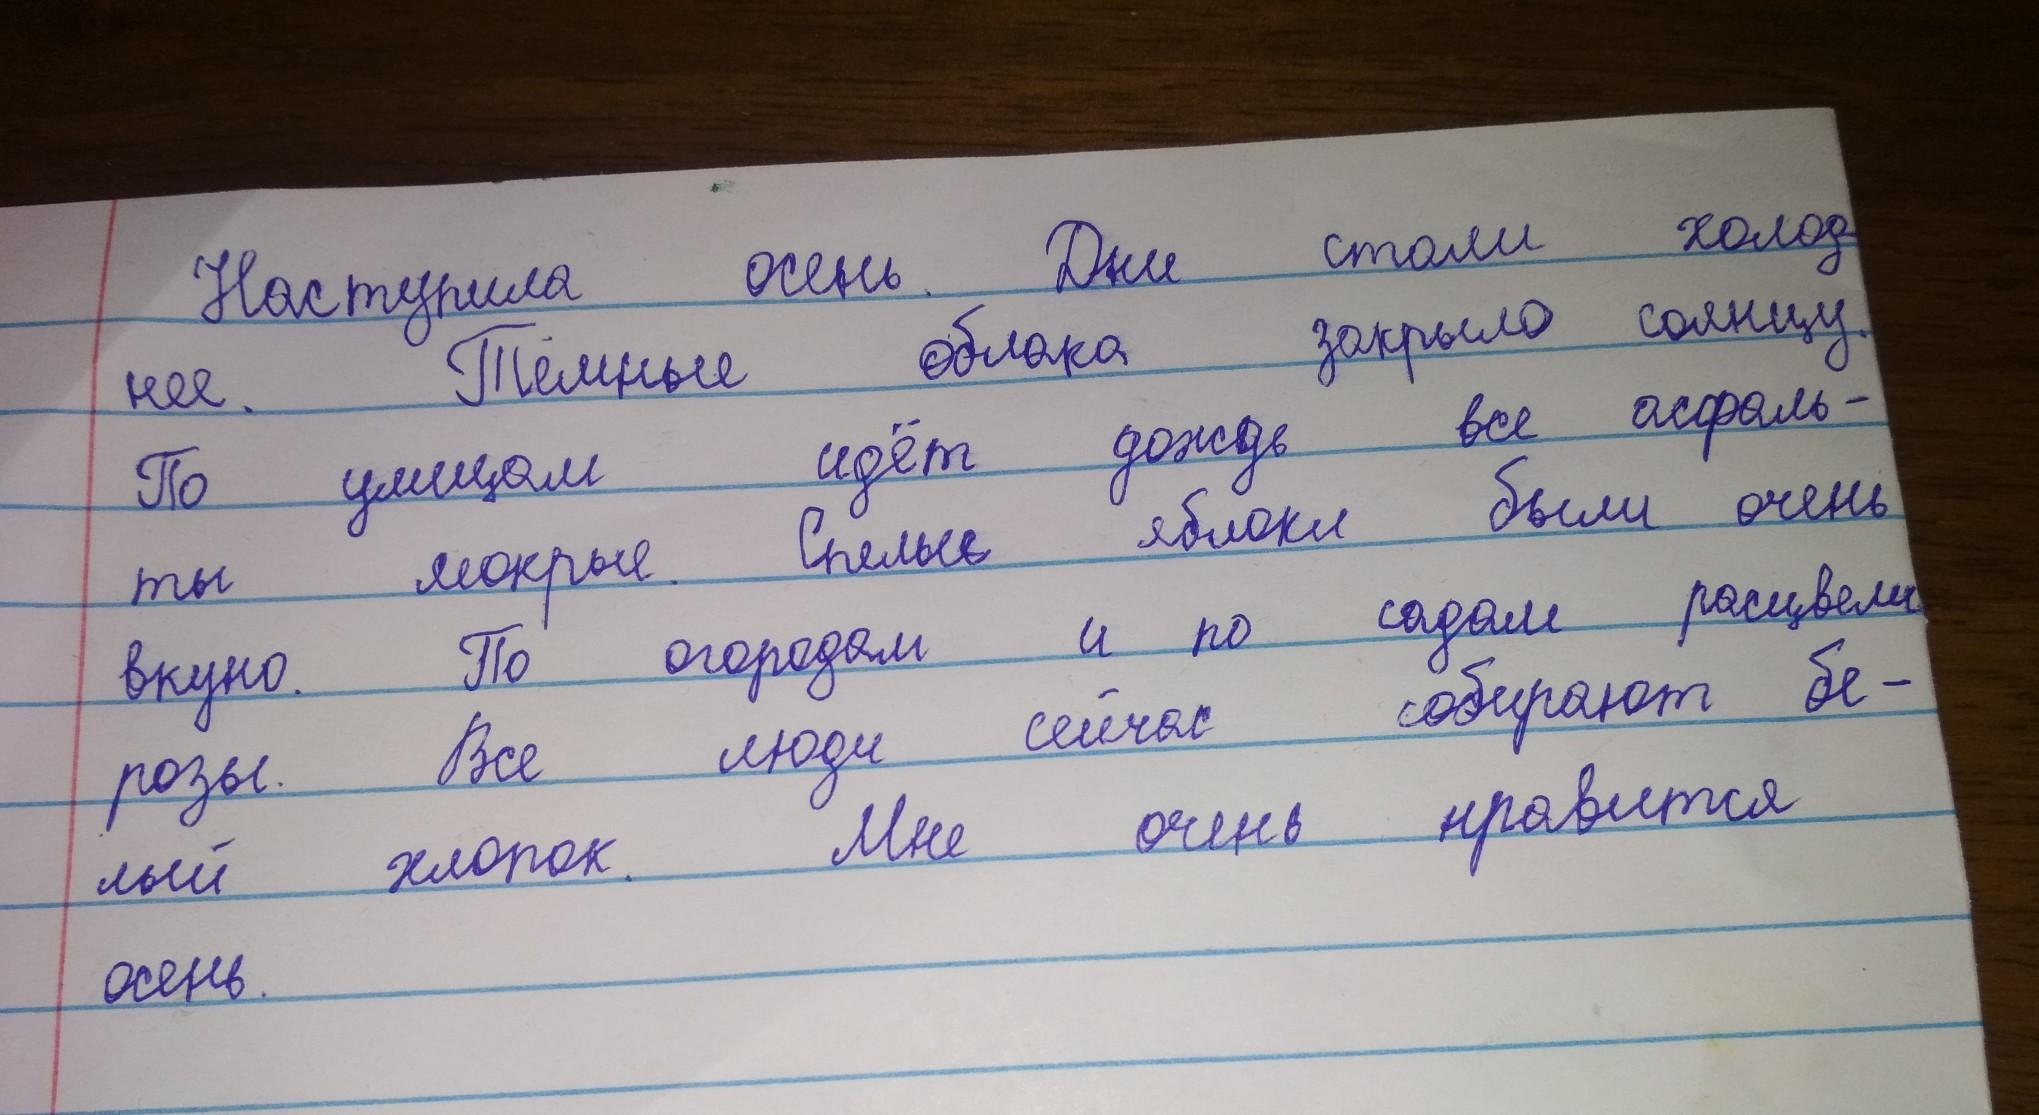 Наступила осень. Дни стали холод
нее. Тёмные облака закрыло солнцу.
По улицам идёт дождь все асфаль-
ты мокрые. Спелые яблоки были очень
вкуно. По огородам и по садам расцвели
розы. Все люди сейчас собирают бе-
лый хлопок. Мне очень нравится
осень.